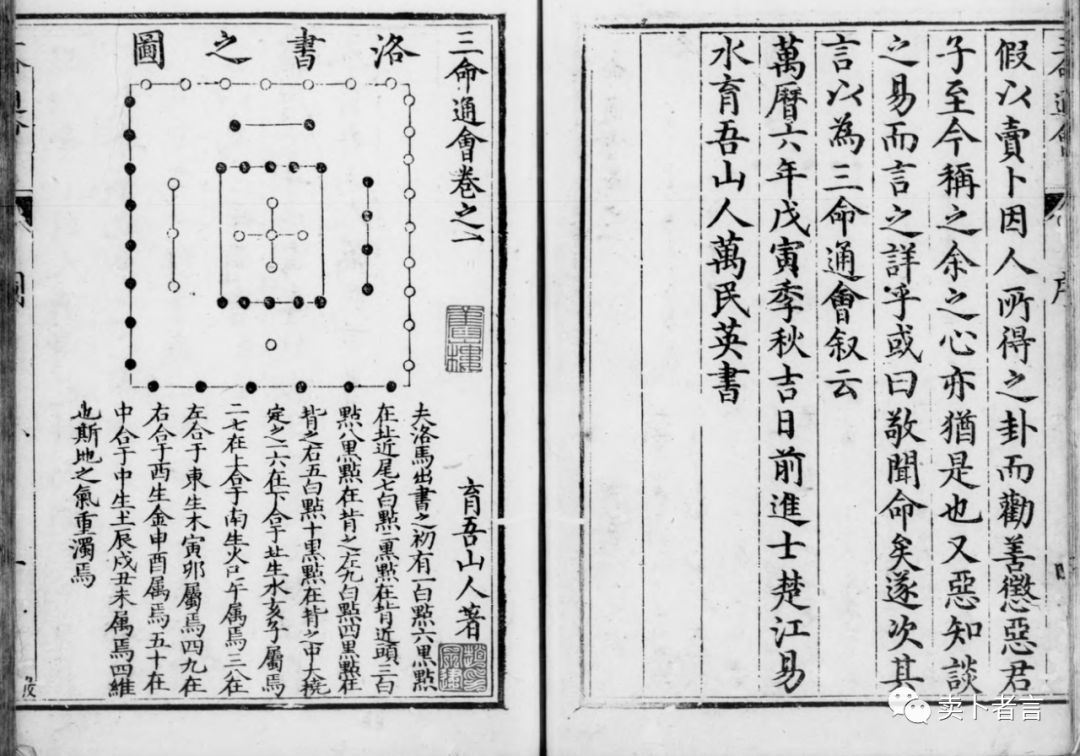 序
假以賣卜因人所得之卦而勸善懲惡君
子至今稱之余之心亦猶是也又惡知談
之易而言之詳乎或曰敬聞命矣遂次其
言以為三命通會叙云
萬曆六年戊寅季秋吉日前進士楚江易
水育吾山人萬民英書
三命通會卷之一
育吾山人著
洛書之圖
夫洛馬出書之初有一白點六黑點
在北近尾七白點二黑點在背近頭三白
點八黑點在背之左九白點四黑點在
背之右五白點十黑點在背之中大撓
定之一六在下合于北生水亥子屬焉
二七在上合于南生火巳午属焉三八在
左合于東生木寅卯屬焉四九在
右合于西生金申酉属焉五十在
中合于中生土辰戌丑未属焉四維
也斯地之氣重濁焉
卖卜者言